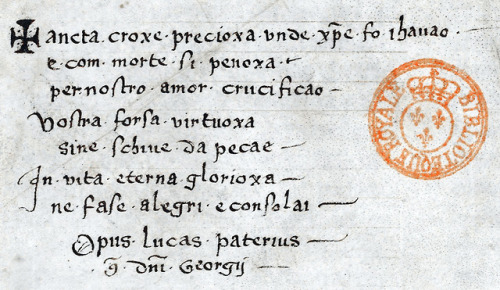 ✠ancta · croxe · precioxa · vnde · xp̅e · fo · ihavao ·
e · com · morte · si · penoxa ·
per nostro · amor · crucificao
Vostra · forsa · virtuoxa
sine · schive · da pecae
In · vita · eterna · glorioxa
ne · fase · alegri · e consolai
Opus · lucas · paterius
· dm̅ · Georgij
BIBLIOTEQUE ROYALE